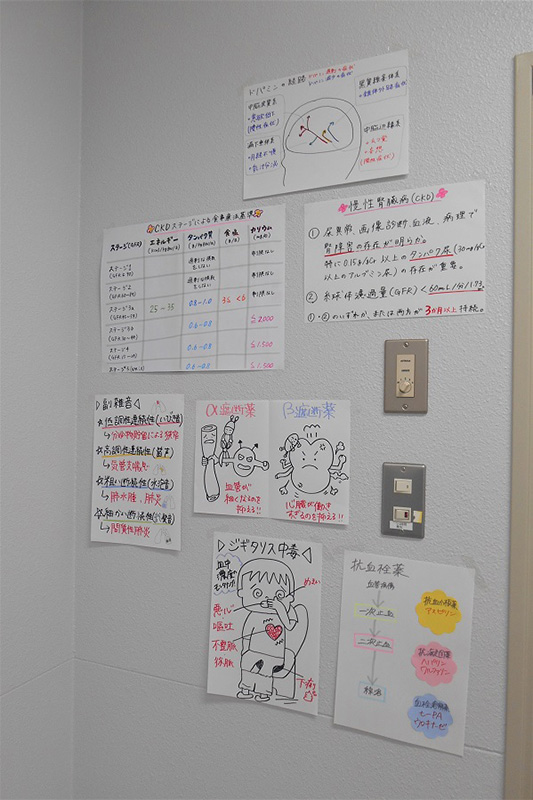 ドパミンの経路
中脳皮質系
中脳辺縁系
・幻覚
・妄想
(陽性症状)
(陰性症状)
慢性腎臓病(CKD)
① 尿異常、画像診断、血液、病理で
腎障害の存在が明らか。
特に0.15g/gCr以上のタンパク尿(30mg/gCr
以上のアルブミン尿)の存在が重要。
② 糸球体濾過量(GFR)<60mL/分/1.73
①・②のいずれか、または両方が3か月以上持続。
CKDステージによる食事療法基準
ステージ(GFR) エネルギー タンパク質 食塩 カリウム
ステージ1 過剰な摂取をしない 制限なし
ステージ2 過剰な摂取をしない 制限なし
ステージ3a 25-35 0.8-1.0 3≦ <6 制限なし
ステージ3b 0.6-0.8 ≦2,000
ステージ4 0.6-0.8 ≦1,500
ステージ5 0.6-0.8 ≦1,500
▷副雑音◁
☆低調性連続性(いびき音)
→分泌物貯留による狭窄
☆高調性連続性(笛声)
→気管支喘息
☆粗い断続性(水泡音)
→肺水腫、肺炎
☆細かい断続性(捻髪音)
→間質性肺炎
α遮断薬
血管が
細くなるのを
抑える!!
β遮断薬
心臓が働き
すぎるのを抑える!!
▷ジギタリス中毒◁
血中
濃度
めまい
悪心
嘔吐
不整脈
徐脈
下痢
抗血栓薬
血管損傷
一次止血
二次止血
線溶
抗血小板薬
アスピリン
抗凝固薬
ヘパリン
ワルファリン
血栓溶解薬
t-PA
ウロキナーゼ